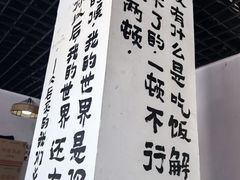 有什么是吃饭解
不了的一顿不行
两顿
候我的世界是
后我的世界还